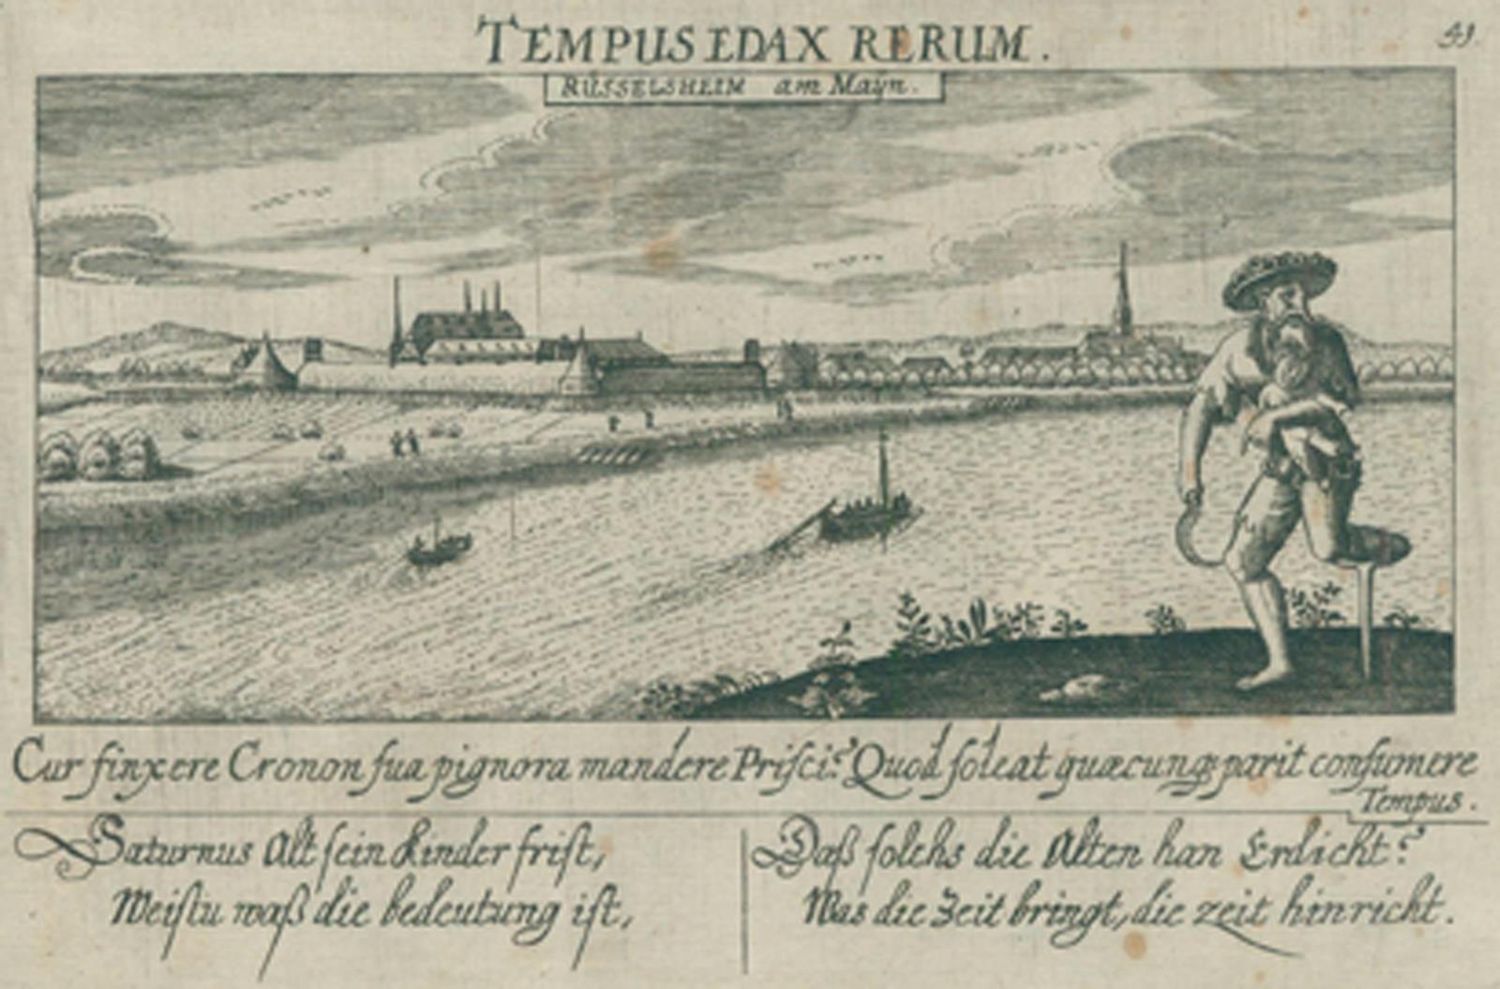 TEMPUS EDAX RERUM.
41.
RÜSSELSHEIM am Maÿn.
Cur finxere Cronon ſua pignora mandere Priſci? Quod ſoleat quæcunq parit conſumere
Tempus.
Saturnus Alt ſein Kinder friſt,
Weiſtu waß die bedeutung iſt,
Daß ſolchs die Alten han Erdicht?
Was die Zeit bringt, die zeit hinricht.